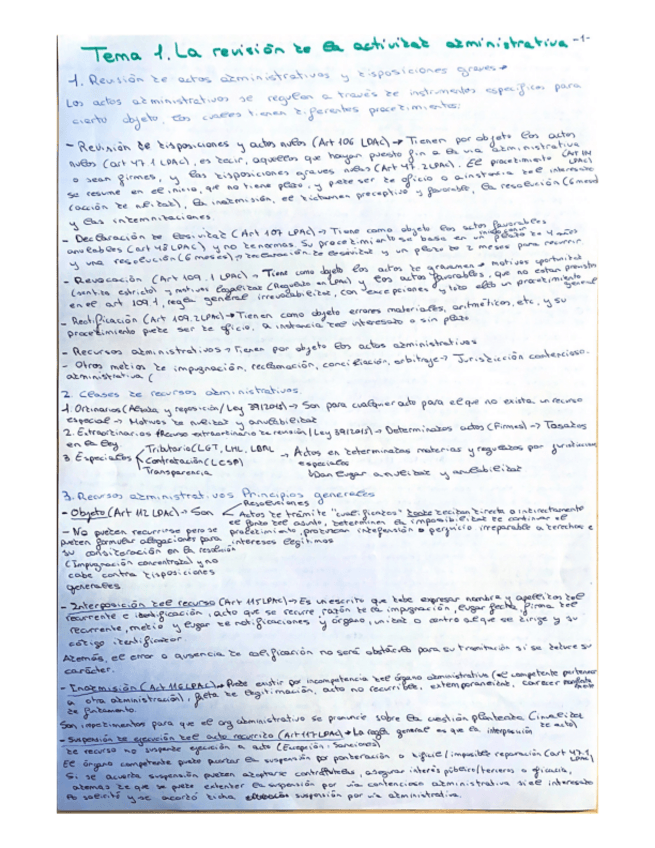 Tema 1. La revisión de la actividad administrativa -1-
1. Revisión de actos administrativos y disposiciones graves
Los actos administrativos se regulan a través de instrumentos específicos para
cierto objeto, los cuales tienen diferentes procedimientos:
- Revisión de disposiciones y actos nulos (Art 106 LPAC) → Tienen por objeto los actos
nulos (art 47.1 LPAC), es decir, aquellos que hayan puesto fin a la vía administrativa
o sean firmes, y las disposiciones graves nulas (Art 47.2 LPAC). El procedimiento (Art LPAC)
se resume en el inicio, que no tiene plazo, y puede ser de oficio o a instancia del interesado
(acción de nulidad), la inadmisión, el dictamen preceptivo y favorable, la resolución (6 mesd
y las indemnizaciones.
- Declaración de lesividad (Art 107 LPAC) → Tiene como objeto los actos favorables
anulables (art 48 LPAC) y no denormas. Su procedimiento se basa en un plazo de 4 años
y una resolución (6 meses) → declaración de lesividad y un plazo de 2 meses para recurrir.
- Revocación (Art 109.1 LPAC) → Tiene como objeto los actos de gravamen → motivos oportunidad
(sentido estricto) y motivos legalidad (Regulado en LPAC) y los actos favorables, que no están previstos
en el art 109.1, regla general irrevocabilidad, con excepciones y todo ello un procedimiento general
- Rectificación (Art 109.2 LPAC) → Tienen como objeto errores materiales, aritméticos, etc, y su
procedimiento puede ser de oficio, a instancia del interesado o sin plazo
- Recursos administrativos → Tienen por objeto los actos administrativos
- Otros medios de impugnación, reclamación, conciliación, arbitraje → Jurisdicción contencioso.
administrativa (
2. Clases de recursos administrativos.
1. Ordinarios (Alzada y reposición / Ley 39/2015) → Son para cualquier acto para el que no exista un recurso
especial → Motivos de nulidad y anulabilidad
2. Extraordinarios (Recurso extraordinario de revisión / Ley 39/2015) → Determinados actos (Firmes) → Tasados
en la ley
3. Especiales Tributario (LGT, LHL, LBRL
Contratación (LCSP)
Transparencia
Actos en determinadas materias y regulados por
especiales
Dan lugar a nulidad y anulabilidad
3. Recursos administrativos Principios generales
- Objeto (Art 112 LPAC) → Son Resoluciones
Actos de trámite "cualificados" deciden directa o indirectamente
el fondo del asunto, determinen la imposibilidad de continuar el
procedimiento, produzcan indefensión o perjuicio irreparable a derechos e
intereses legítimos
- No pueden recurrirse pero se
pueden formular alegaciones para
su consideración en la resolución
(Impugnación concentrada) y no
cabe contra disposiciones
generales
- Interposición del recurso (Art 115 LPAC) → Es un escrito que debe expresar nombre y apellidos del
recurrente e identificación, acto que se recurre, razón de la impugnación, lugar fecha, firma del
recurrente, medio y lugar de notificaciones y órgano, unidad o centro al que se dirige y su
código identificador.
Además, el error o ausencia de calificación no será obstáculo para su tramitación si se deduce su
carácter.
- Inadmisión (Art 116 LPAC) → Puede existir por incompetencia del órgano administrativo (el competente pertenece
a otra administración), falta de legitimación, acto no recurrible, extemporaneidad, carecer
de fundamento.
Son impedimentos para que el org administrativo se pronuncie sobre la cuestión planteada (invalidez de acto)
- Suspensión de ejecución del acto recurrido (Art 117 LPAC) → La regla general es que la interposición
de recurso no suspende ejecución a acto (Excepción: Sanciones)
El órgano competente puede acordar la suspensión por ponderación o difícil / imposible reparación (art 47.1 LPAC)
Si se acuerda suspensión pueden adoptarse contracautelas, asegurar interés público/terceros o eficacia,
además de que se puede extender la suspensión por vía contencioso administrativa si el interesado
lo solicitó y se acordó dicha suspensión por vía administrativa.